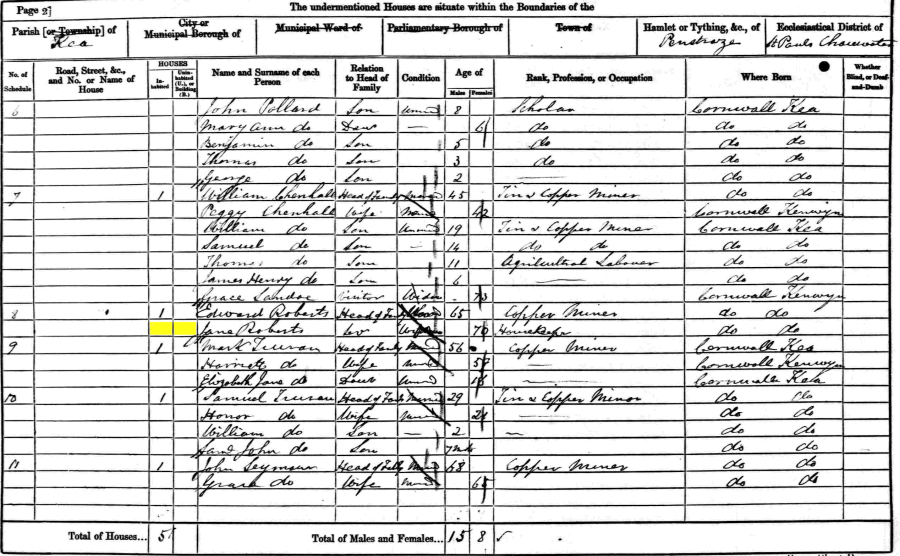 Page 2] The undermentioned Houses are situate within the Boundaries of the
Parish [or Township] of Kea City or Municipal Borough of Municipal Ward of Parliamentary Borough of Town of Hamlet or Tything, &c., of Penstraze Ecclesiastical District of St Pauls
No. of Schedule Road, Street, &c., and No. or Name of House HOUSES Inhabited Uninhabited (U.), or Building (B.) Name and Surname of each Person Relation to Head of Family Condition Age of Males Females Rank, Profession, or Occupation Where Born Whether Blind, or Deaf-and-Dumb
6 John Pollard Son 8 Scholar Cornwall Kea
Mary Ann do Daur — 6 do do do
Benjamin do Son 5 do do do
Thomas do Son 3 do do do
George do Son 2 — do do
7 1 William Chenhall Head of Family 45 Tin & Copper Miner do do
Peggy Chenhall Wife 42 Cornwall Kenwyn
William do Son 19 Tin & Copper Miner Cornwall Kea
Samuel do Son — 14 do do do do
Thomas do Son 11 Agricultural Labourer do do
James Henry do Son 6 — do do
Grace Visitor Widow 73 Cornwall Kenwyn
8 1 Edward Roberts Head of 65 Copper Miner do do
Jane Roberts 70 Housekeeper
9 1 Mark Truran Head of Family 56 Copper Miner Cornwall Kea
Harriett do Wife 57 — Cornwall Kenwyn
Elizabeth Jane do — Cornwall Kea
10 1 Samuel Truran Head of 29 Tin & Copper Minor do do
Honor do Wife — do do
William do Son — 2 — do do
John do Son do do
11 1 John Seymour Head of 68 Copper Miner do do
Grace do Wife do do
Total of Houses... 5 Total of Males and Females... 15 8